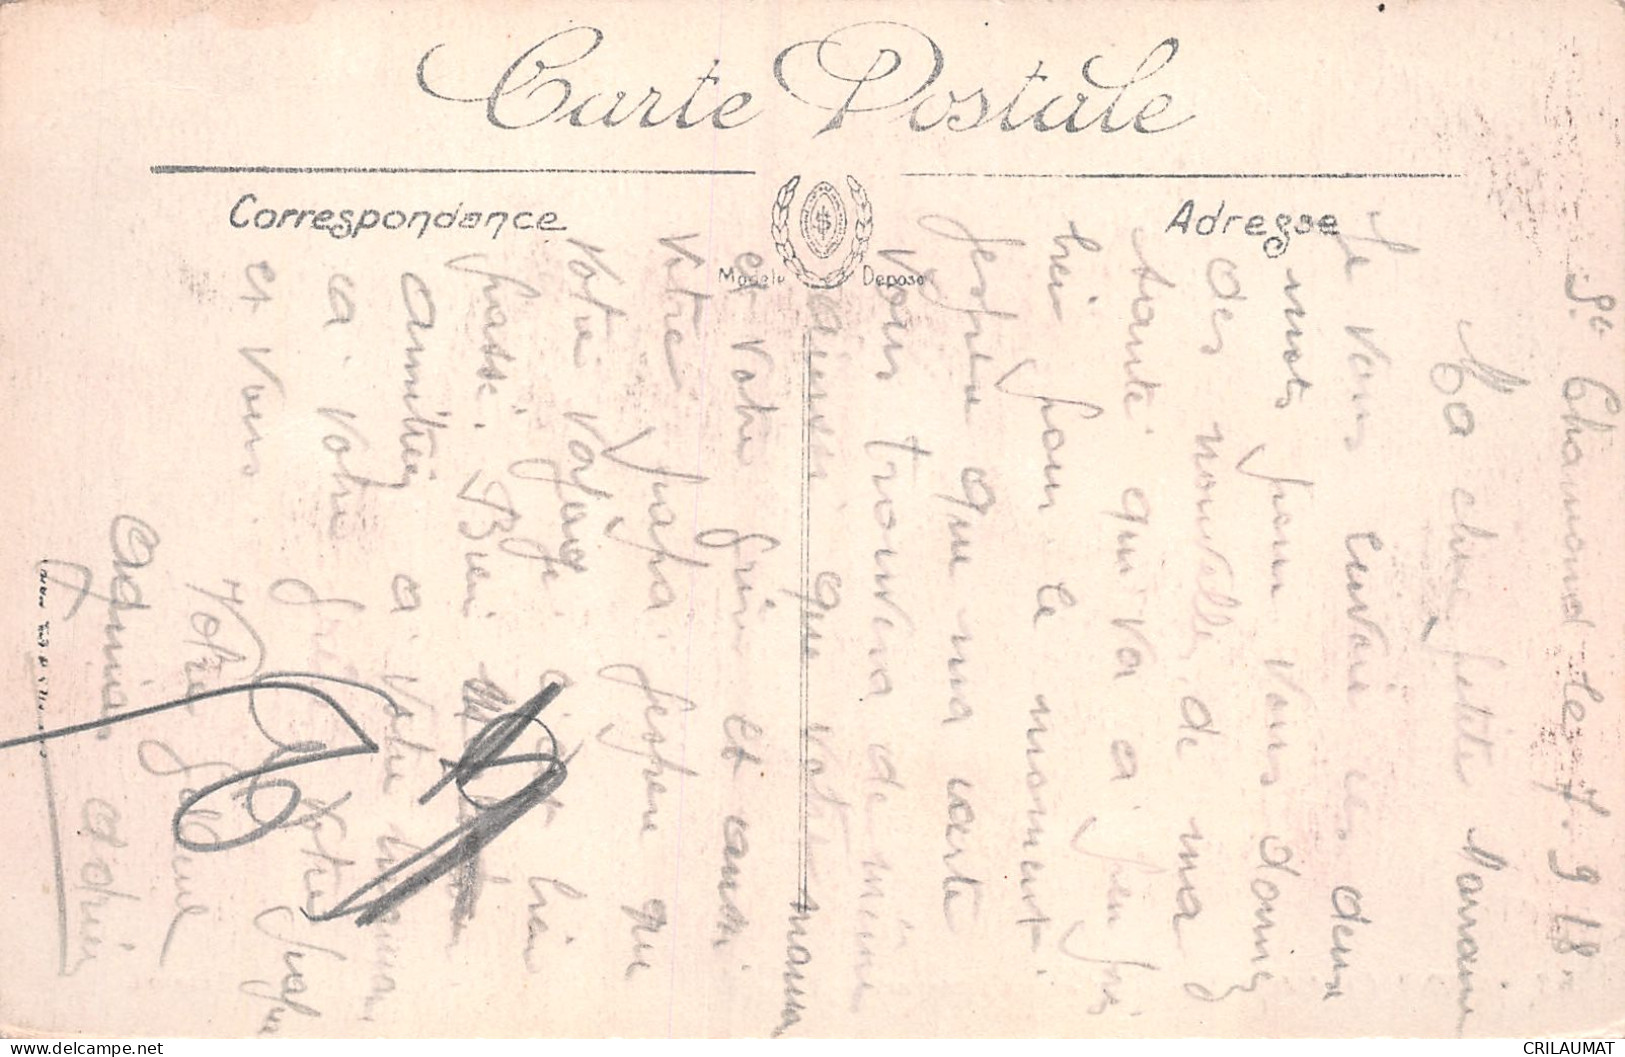 Carte Postale
Correspondance
Adresse
Modele Deposé
St Chamond le 7. 9 18
Ma chere petite Marraine
Je vous envoie ces deux
mots pour vous donnez
des nouvelles de ma
santé qui va a peu pres
bien pour le moment.
Jespere que ma carte
vous trouvera de meme
ainsi que votre maman
et votre frere et aussi
votre papa. Jespere que
votre voyage a ete bien
passé. Bien
amitiés a votre maman
a votre frere votre papa
et vous.
Votre filleul
Adrien
CRILAUMAT